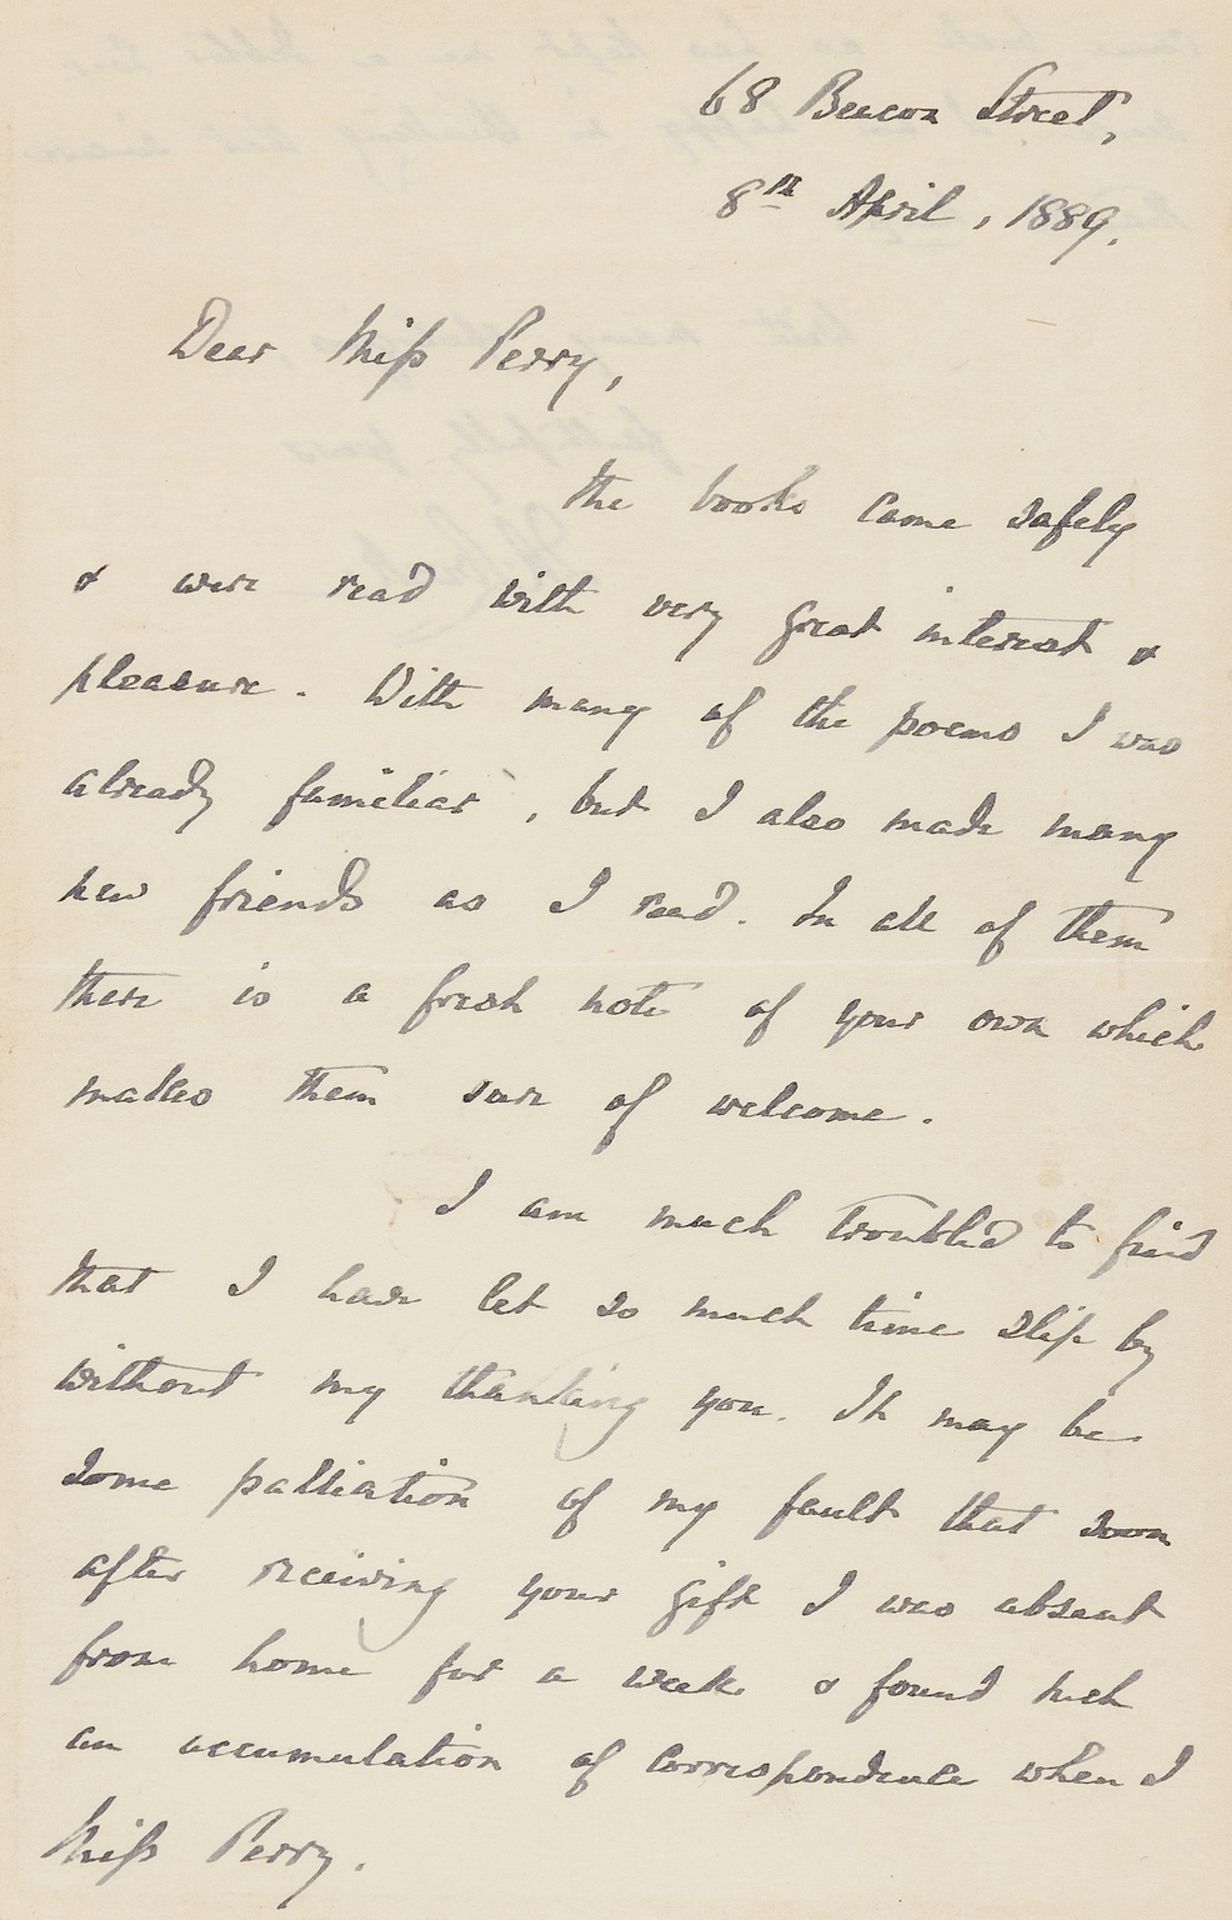 68 Beacon Street,
8th April, 1889.
Dear Miss Perry,
the books came safely
& were read with very great interest &
pleasure. With many of the poems I was
already familiar, but I also made many
new friends as I read. In all of them
there is a fresh note of your own which
makes them sure of welcome.
I am much troubled to find
that I have let so much time slip by
without my thanking you. It may be
some palliation of my fault that soon
after receiving your gift I was absent
from home for a week & found such
an accumulation of correspondence when I
Miss Perry.